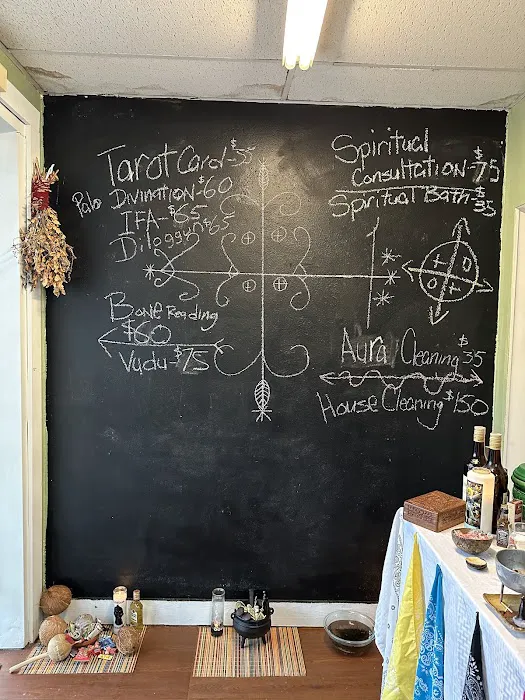 Tarot Card-$35
Palo Divination-$60
IFA-$65
Diloggun $65
Bone Reading
$60
Vudu-$75
Spiritual
Consultation-$75
Spritual Bath-$35
Aura Cleaning $35
House Cleaning $150